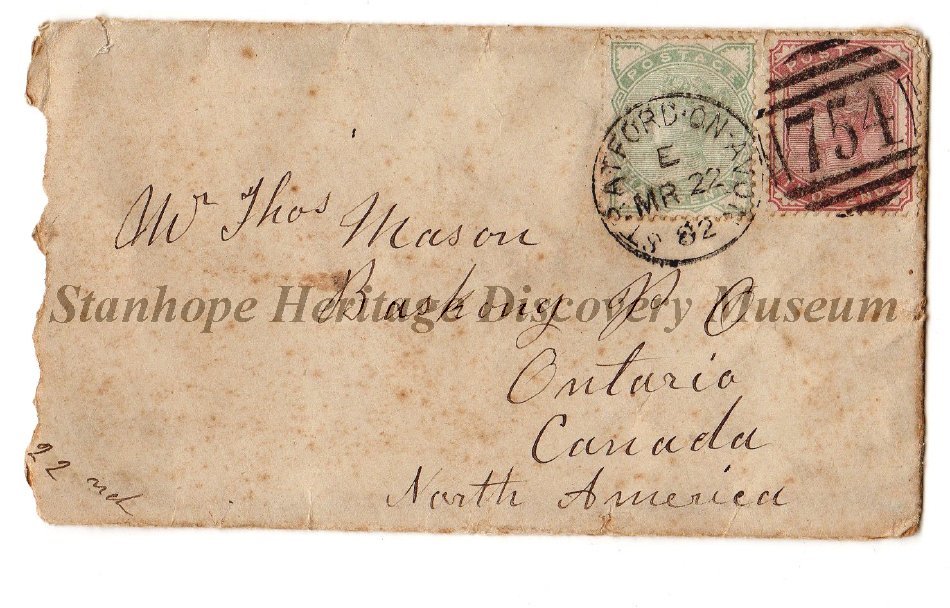 POSTAGE
POSTAGE
754
STRATFORD-ON-AVON
E
MR 22
82
Mr Thos Mason
Baskony P O
Stanhope Heritage Discovery Museum
Ontario
Canada
North America
22 nd